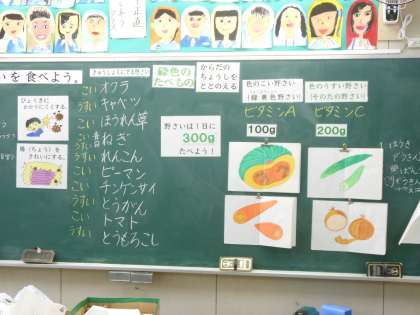 い を 食べよう。
びょうきに
かかりにくくする。
腸（ちょう）を
きれいにする。
きゅうしょくにでる野さい
こい オクラ
うすい キャベツ
こい ほうれん草
ねぎ
うすい れんこん
こい ピーマン
こい チンゲンサイ
うすい とうがん
こい トマト
うすい とうもろこし
緑色の
たべもの
からだの
ちょうしを
ととのえる
野さいは１日に
300g
たべよう！
色のこい野さい
（緑・黄色野さい）
ビタミンA
100g
色のうすい野さい
（そのたの野さい）
ビタミンC
200g